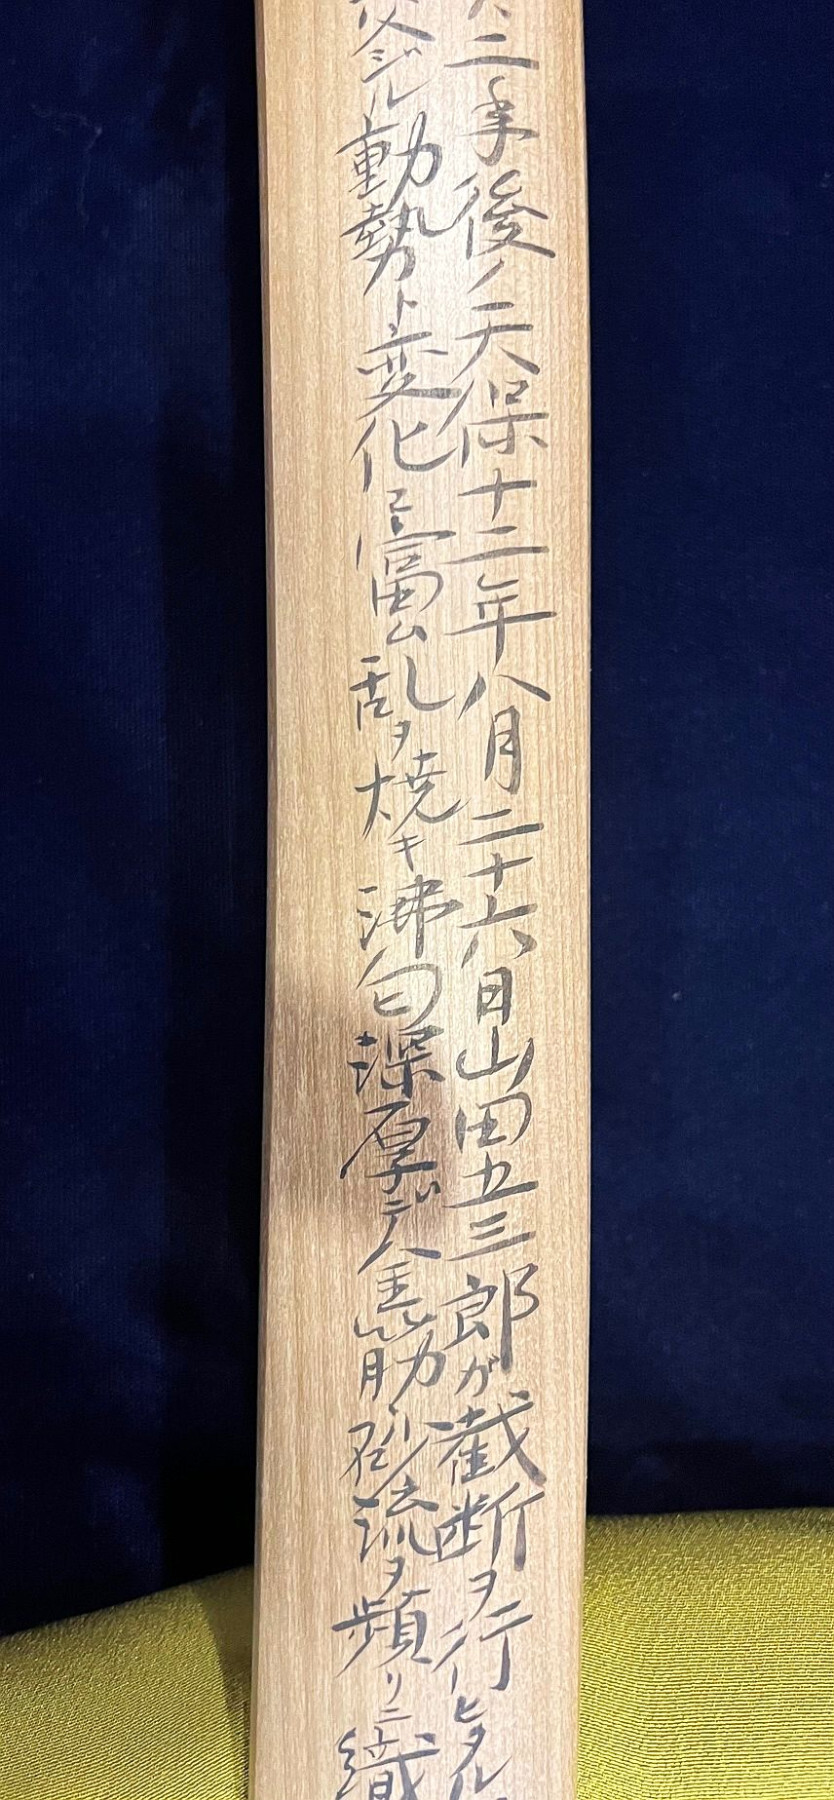 二年後ノ天保十二年八月二十六日山田五三郎ガ截断ヲ行ヒタル
ジル動勢ト変化ニ富ム乱ヲ焼キ沸匂深厚デ金筋砂流ヲ頻リニ織